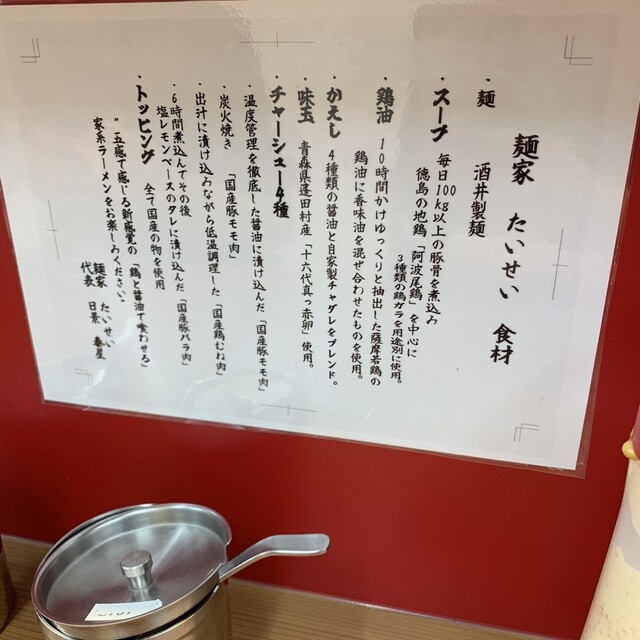 麺家 たいせい 食材
・麺 酒井製麺
・スープ 毎日100kg以上の豚骨を煮込み
徳島の地鶏「阿波尾鶏」を中心に
3種類の鶏ガラを用途別に使用。
・鶏油 10時間かけゆっくりと抽出した薩摩若鶏の
鶏油に香味油を混ぜ合わせたものを使用。
・かえし 4種類の醤油と自家製チャダレをブレンド。
・味玉 青森県蓬田村産「十六代真っ赤卵」使用。
・チャーシュー4種
・温度管理を徹底した醤油に漬け込んだ「国産豚モモ肉」
・炭火焼き 「国産豚モモ肉」
・出汁に漬け込みながら低温調理した「国産鶏むね肉」
・6時間煮込んでその後
塩レモンベースのタレに漬け込んだ「国産豚バラ肉」
・トッピング 全て国産の物を使用
"五感で感じる新感覚の「鶏と醤油で喰わせる」
家系ラーメンをお楽しみください"
麺家 たいせい
代表 日景 泰星